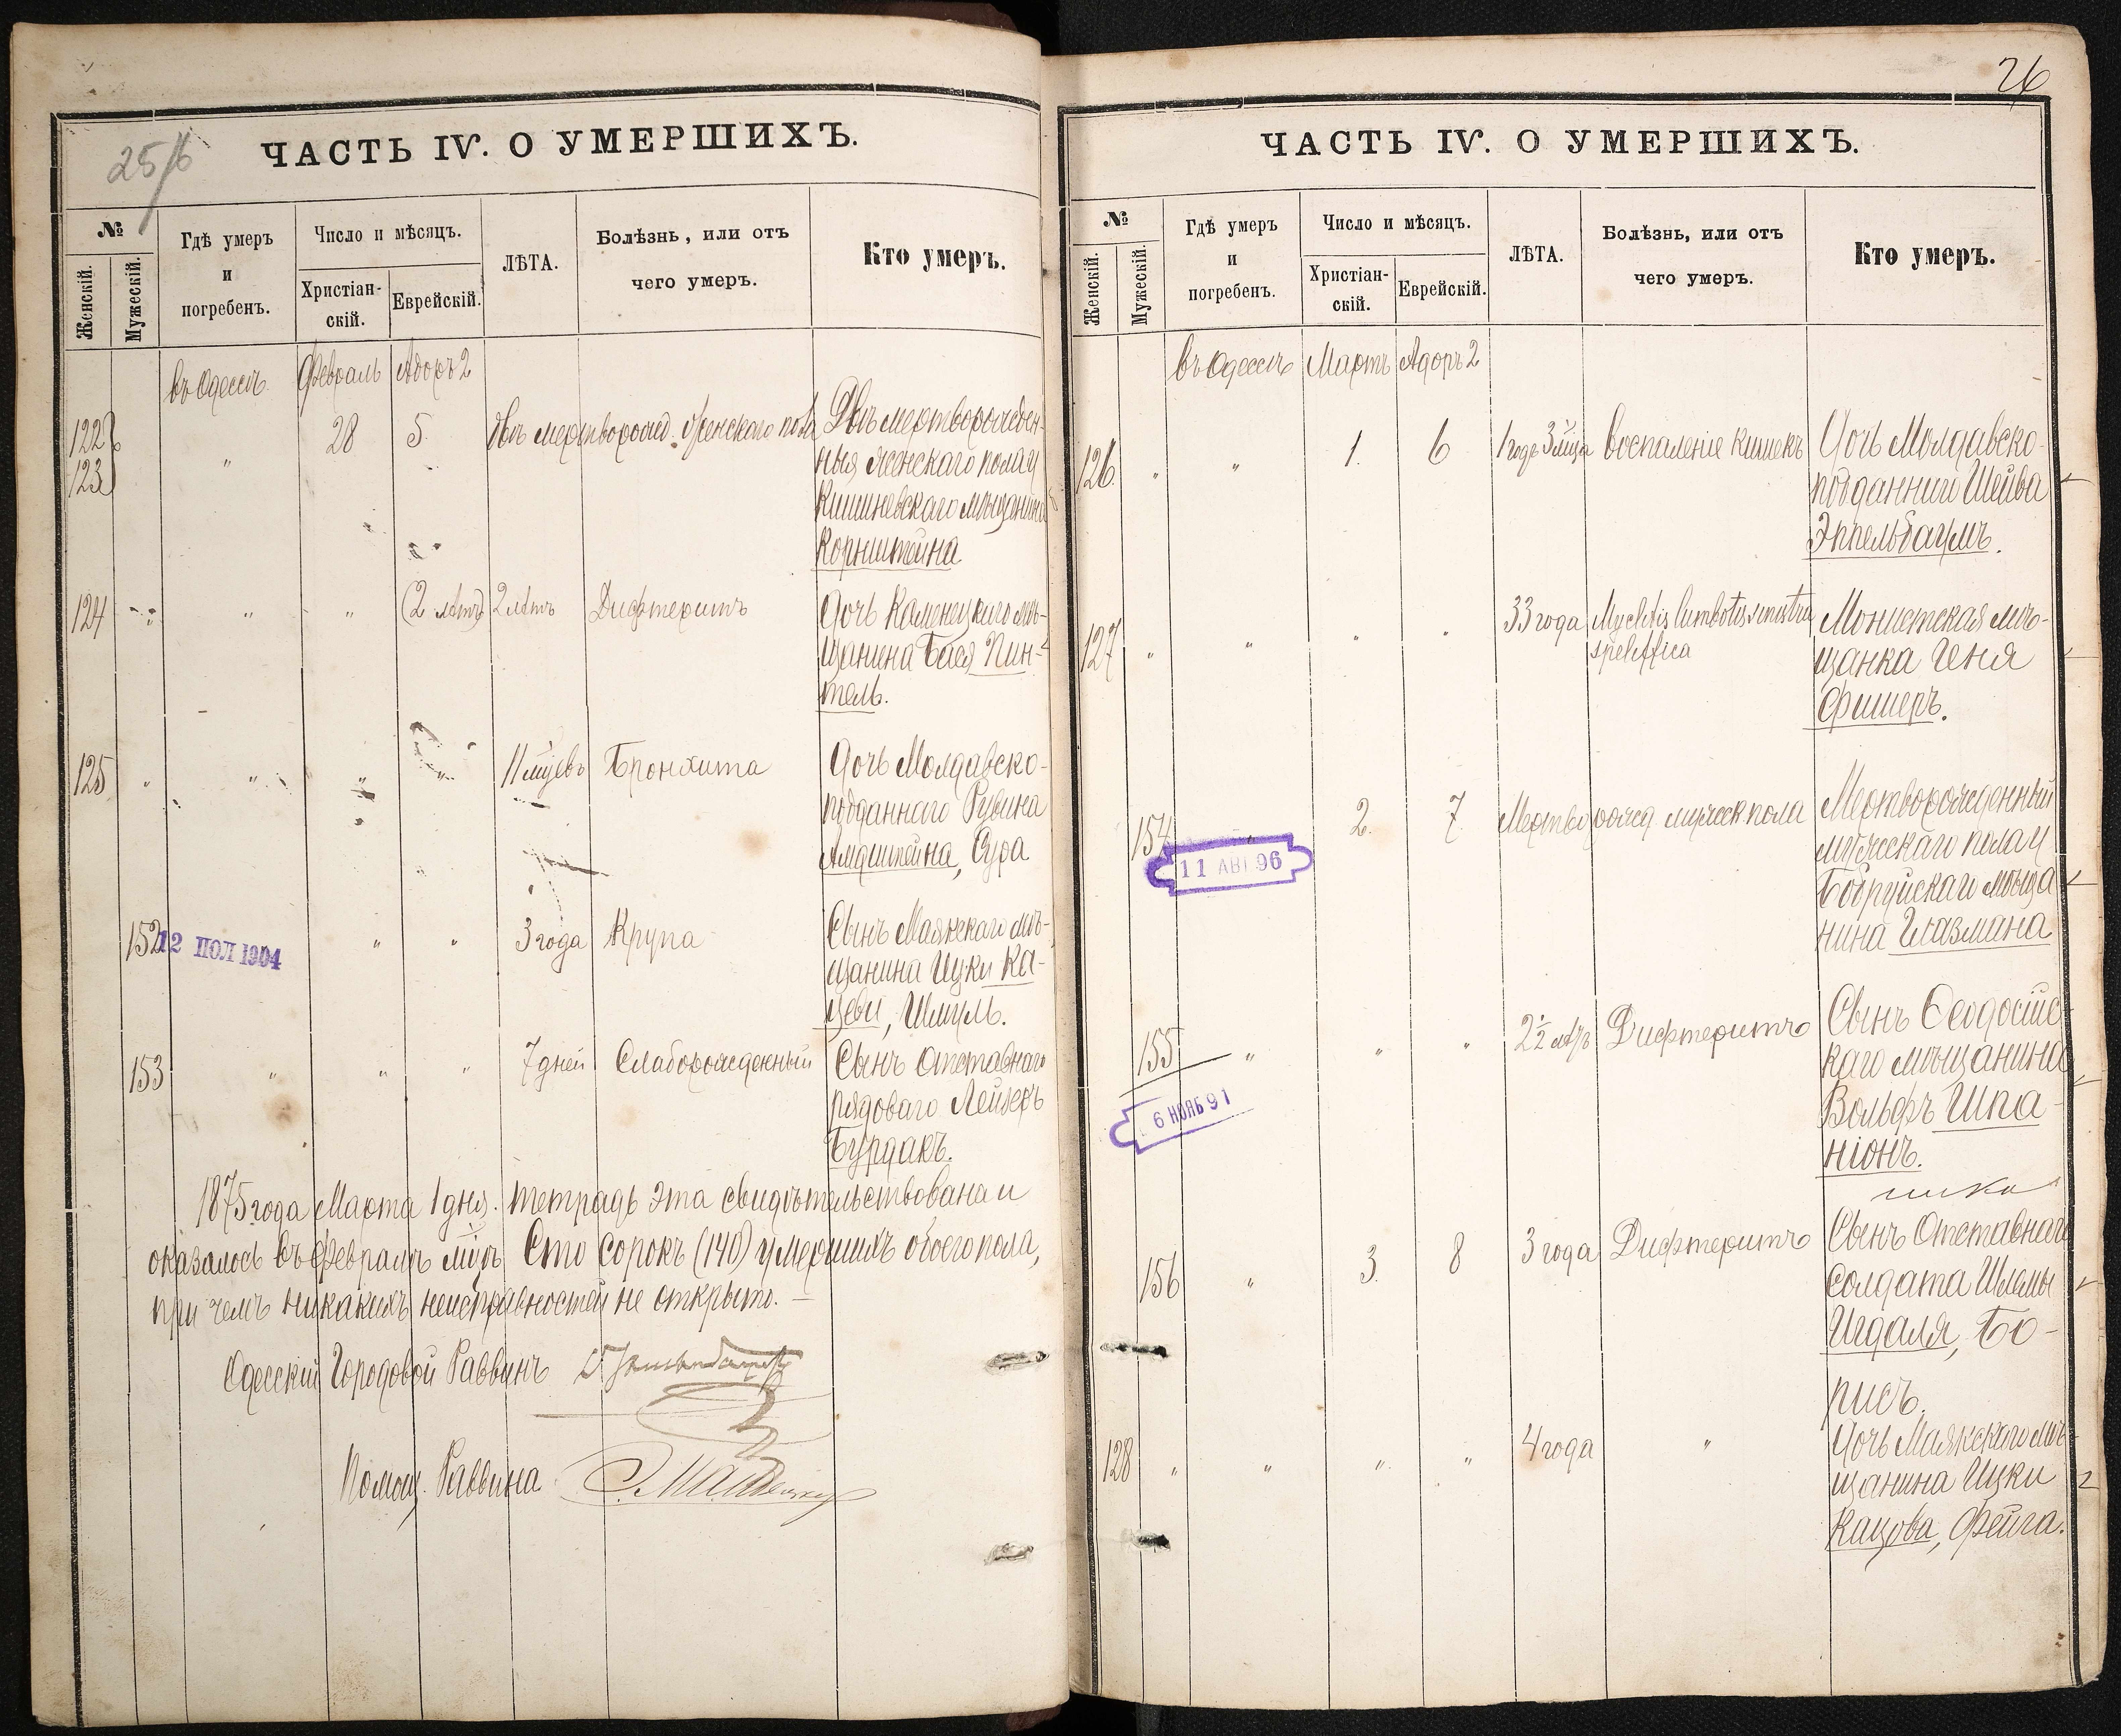 25/б
ЧАСТЬ IV. О УМЕРШИХЪ.
№
Женскій.
Мужескій.
Гдѣ умеръ
и
погребенъ.
Число и мѣсяцъ.
Христіан-
скій.
Еврейскій.
ЛѢТА.
Болѣзнь, или отъ
чего умеръ.
Кто умеръ.
въ Одессѣ Февраль Адоръ 2
122
123
" 28 5
двѣ мертворожд. женскаго пола
Двѣ мертворожден-
ныя женскаго пола у
Кишиневскаго мѣщанина
Корнштейна
124 " " (2 лѣтъ) 2 лѣтъ Дифтеритъ
Дочь Каменецкаго мѣ-
щанина Бася Пин-
тель.
125 " " " " 11 мцевъ Бронхита
Дочь Молдавско-
подданнаго Рувина
Амдштейна, Сура
152 12 ПОЛ 1904 " " 3 года Крупа
Сынъ Маякскаго мѣ-
щанина Ицки Ка-
цева, Шмуль.
153 " " " 7 дней Слаборожденный
Сынъ отставнаго
рядоваго Лейзеръ
Бурдакъ.
1875 года Марта 1 дня. тетрадь эта свидѣтельствована и
оказалось въ Февралѣ мцѣ Сто сорокъ (140) умершихъ обоего пола,
при чемъ никакихъ неисправностей не открыто. —
Одесскій Городовой Раввинъ
Помощ. Раввина
26
ЧАСТЬ IV. О УМЕРШИХЪ.
№
Женскій.
Мужескій.
Гдѣ умеръ
и
погребенъ.
Число и мѣсяцъ.
Христіан-
скій.
Еврейскій.
ЛѢТА.
Болѣзнь, или отъ
чего умеръ.
Кто умеръ.
въ Одессѣ Мартъ Адоръ 2
126 " " 1. 6 1 годъ 3 мца Воспаленіе кишекъ
Дочь Молдавско-
подданнаго Шейва
Эппельбаумъ.
127 " " " " 33 года
Мѣщанка Геня
Фишеръ.
154 " 2. 7 Мертворожд мужск пола
11 АВГ 96
Мертворожденный
мужескаго пола у
Бобруйскаго мѣща
нина Глазмана
155 " " " 2½ лѣтъ Дифтеритъ
6 НОЯБ 91
Сынъ Ѳеодосійс-
каго мѣщанина
Вольфъ Шпа-
ніонъ.
156 " 3. 8 3 года Дифтеритъ
Сынъ Отставнаго
солдата Шлемы
Игдаля, Бо-
рисъ.
128 " " " " 4 года "
Дочь Маякскаго мѣ
щанина Ицки
Кацова, Фейга.